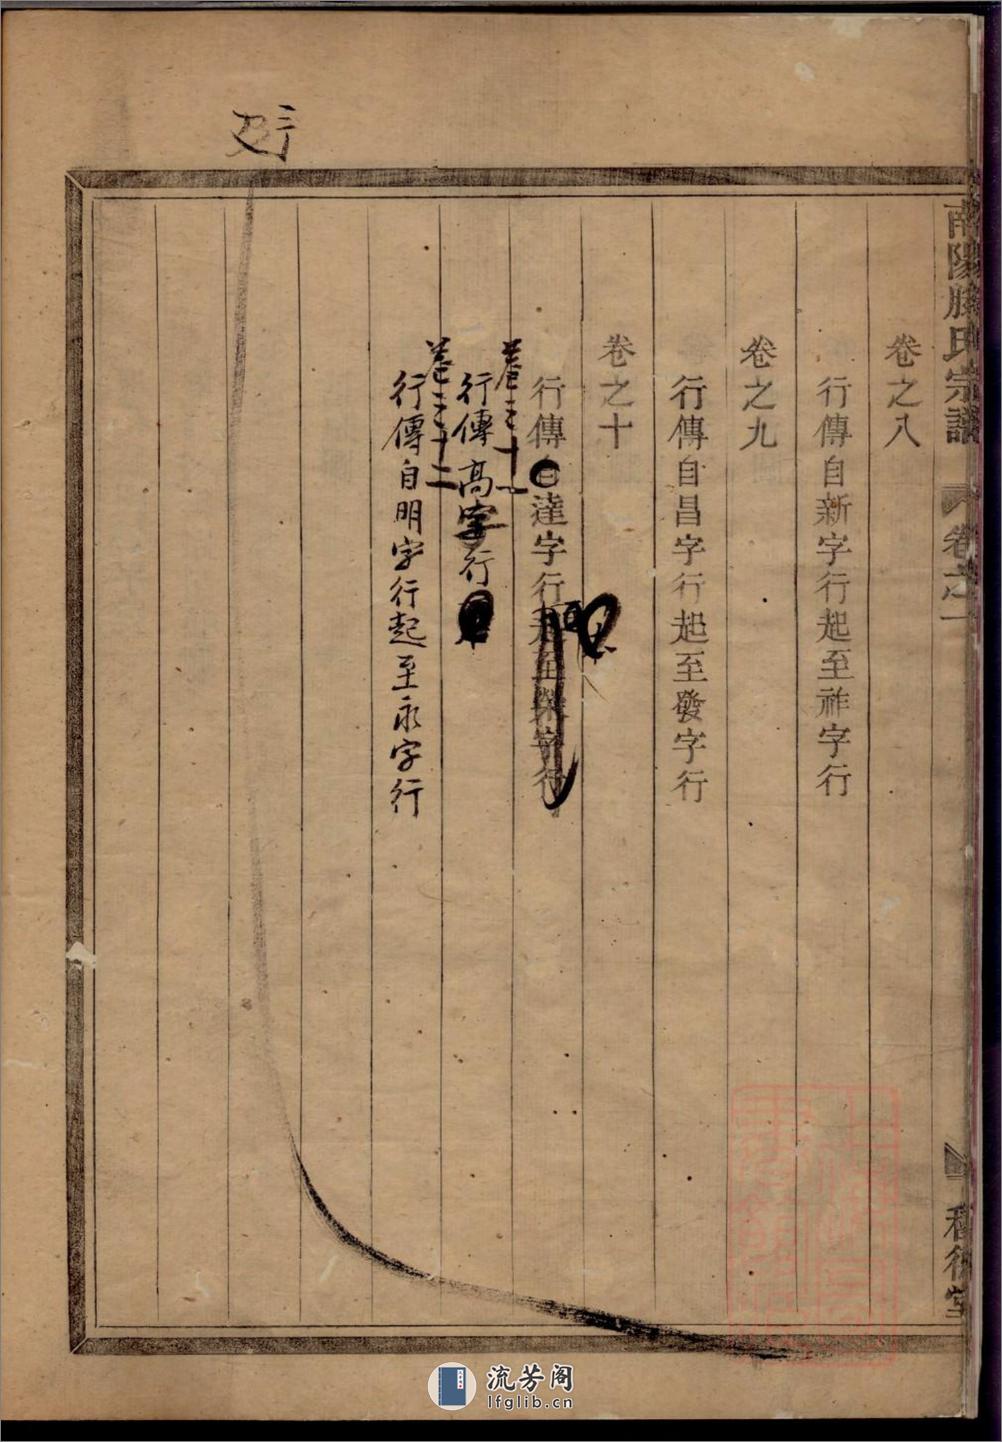 南陽滕氏宗譜 卷之一
卷之八
行傳自新字行起至祚字行
卷之九
行傳自昌字行起至發字行
卷之十
行傳自達字行起至榮字行
卷之十一
行傳高字行
卷之十二
行傳自明字行起至永字行
流芳阁
lfglib.cn